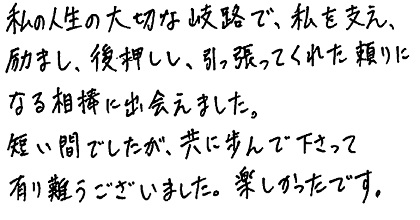 私の人生の大切な岐路で、私を支え、
励まし、後押しし、引っ張ってくれた頼りに
なる相棒に出会えました。
短い間でしたが、共に歩んで下さって
有り難うございました。楽しかったです。